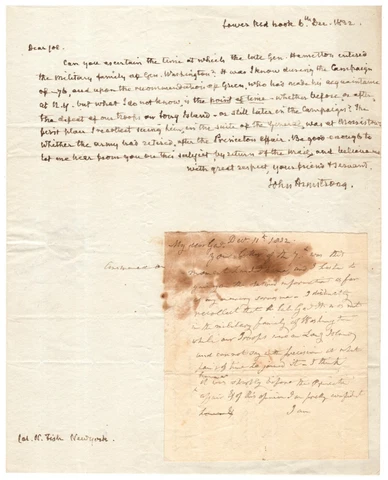 Lower Red hook 6th Dec. 1832.
Dear Col.
Can you ascertain the time at which the late Gen. Hamilton entered
the military family of Gen. Washington? It was I know during the Campaign
of —76, and upon the recommendation of Green, who had made his acquaintance
at N.Y. but what I do not know, is the point of time — whether before or after
the defeat of our troops on Long Island — or still later in the Campaign? The
first place I recollect seeing him, in the suite of the General, was at Morristown
whither the army had retired, after the Princeton affair. Be good enough to
let me hear from you on this subject by return of the mail, and believe me
with great respect your friend & servant.
John Armstrong.
My dear Gen. Decr 11th 1832.
Answered on
Your letter of the
information as far
as my memory serves me. I distinctly
recollect that the late Genl H was not
in the military family of Washington
while our Troops were on Long Island,
and cannot say with precision at what
time he joined it. I think
it was shortly before the Princeton
affair
I am
Col. N. Fish Newyork.